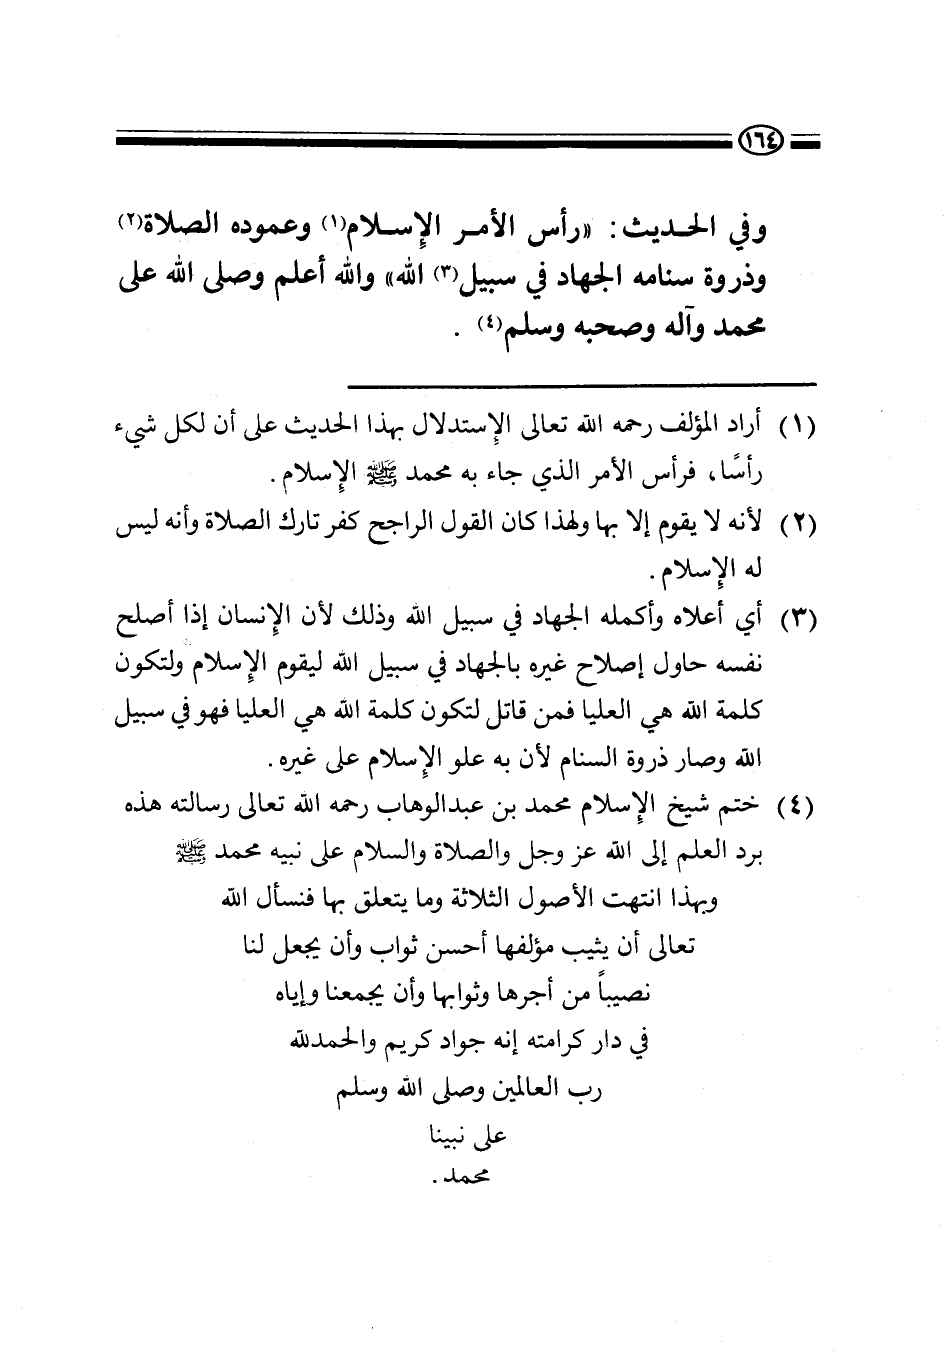 ١٦٤
وفي الحـديث: «رأس الأمـر الإسـلام(١) وعموده الصلاة(٢)
وذروة سنامه الجهاد في سبيل(٣) الله» والله أعلم وصلى الله على
محمد وآله وصحبه وسلم(٤) .
(١) أراد المؤلف رحمه الله تعالى الإستدلال بهذا الحديث على أن لكل شيء
رأسًا، فرأس الأمر الذي جاء به محمد ﷺ الإسلام .
(٢) لأنه لا يقوم إلا بها ولهذا كان القول الراجح كفر تارك الصلاة وأنه ليس
له الإسلام .
(٣) أي أعلاه وأكمله الجهاد في سبيل الله وذلك لأن الإنسان إذا أصلح
نفسه حاول إصلاح غيره بالجهاد في سبيل الله ليقوم الإسلام ولتكون
كلمة الله هي العليا فمن قاتل لتكون كلمة الله هي العليا فهو في سبيل
الله وصار ذروة السنام لأن به علو الإسلام على غيره .
(٤) ختم شيخ الإسلام محمد بن عبدالوهاب رحمه الله تعالى رسالته هذه
برد العلم إلى الله عز وجل والصلاة والسلام على نبيه محمد ﷺ
وبهذا انتهت الأصول الثلاثة وما يتعلق بها فنسأل الله
تعالى أن يثيب مؤلفها أحسن ثواب وأن يجعل لنا
نصيباً من أجرها وثوابها وأن يجمعنا وإياه
في دار كرامته إنه جواد كريم والحمدلله
رب العالمين وصلى الله وسلم
على نبينا
محمد .